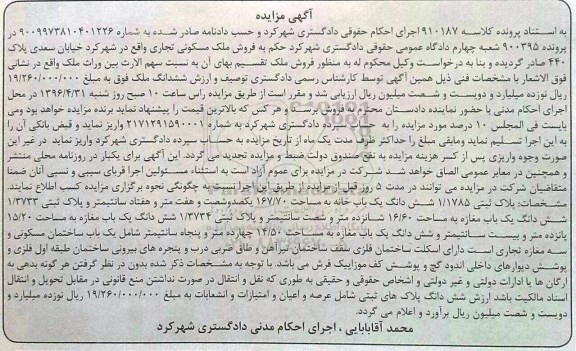 آگهی مزایده
به استناد پرونده کلاسه ۹۱۰۱۸۷ اجرای احکام حقوقی دادگستری شهرکرد و حسب دادنامه صادر شده به شماره ۹۰۰۹۹۷۳۸۱۰۴۰۱۲۲۶ در
پرونده ۹۰۰۳۹۵ شعبه چهارم دادگاه عمومی حقوقی دادگستری شهرکرد حکم به فروش ملک مسکونی تجاری واقع در شهرکرد خیابان سعدی پلاک
۴۴۰ صادر گردیده و بنا به درخواست وکیل محکوم له به منظور فروش ملک تقسیم بهای آن به نسبت سهم الارث بین وراث ملک واقع در نشانی
فوق الاشعار با مشخصات فنی ذیل همین آگهی توسط کارشناس رسمی دادگستری توصیف و ارزش ششدانگ ملک فوق به مبلغ ۱۹/۲۶۰/۰۰۰/۰۰۰
ریال نوزده میلیارد و دویست و شصت میلیون ریال ارزیابی شد و مقرر است از طریق مزایده راس ساعت ۱۰ صبح روز شنبه ۹۱/۴/۳۱ در محل
اجرای احکام مدنی با حضور نماینده دادستان محترم به فروش برسد و هر کس که بالاترین قیمت را پیشنهاد نماید برنده مزایده خواهد بود ومی
بایست فی المجلس ۱۰ درصد مورد مزایده را به حساب سپرده دادگستری شهرکرد به شماره ۲۱۷۱۲۹۱۵۹۰۰۰۱ واریز نماید و فیش بانکی آن را
به این اجرا تسلیم نماید ومابقی مبلغ را حداکثر ظرف مدت یک ماه از تاریخ مزایده به حساب سپرده دادگستری شهرکرد واریز نماید در غیر این
صورت وجوه واریزی پس از کسر هزینه مزایده به نفع صندوق دولت ضبط و مزایده تجدید می گردد. این آگهی برای یکبار در روزنامه محلی منتشر
و همچنین در معابر عمومی الصاق خواهد شد شرکت در مزایده برای عموم آزاد است به استثناء مسئولین اجرا قربای سببی و نسبی آنان ضمنا
متقاضیان شرکت در مزایده می توانند در مدت ۵ روز قبل از مزایده از طریق این اجرا نسبت به چگونگی نحوه برگزاری مزایده کسب اطلاع نمایند.
مشخصات: پلاک ثبتی ۱/۱۷۸۵ شش دانگ یک باب خانه به مساحت ۱۶۷/۷۰ یکصدوشصت و هفت متر و هفتاد سانتیمتر و پلاک ثبتی ۱/۳۷۳۳
شش دانگ یک باب مغازه به مساحت ۱۶/۶۰ شانزده متر و شصت سانتیمتر و پلاک ثبتی ۱/۳۷۳۴ شش دانگ یک باب مغازه به مساحت ۱۵/۲۰
پانزده متر و بیست سانتیمتر و شش دانگ یک باب مغازه به مساحت ۱۴/۵۰ چهارده متر و پنجاه سانتیمتر شامل یک باب ساختمان مسکونی و
سه مغازه تجاری است دارای اسکلت ساختمان فلزی سقف ساختمان تیرآهن و طاق ضربی درب و پنجره های بیرونی ساختمان طبقه اول فلزی و
پوشش دیوارهای داخلی اندود گچ و پوشش کف موزاییک فرش می باشد. با توجه به مشخصات ذکر شده بدون در نظر گرفتن هر گونه بدهی به
ارگان ها یا ادارات دولتی و غیر دولتی و اشخاص حقوقی و حقیقی به طوری که نقل و انتقال در صورت نداشتن منع قانونی در مقابل تحویل و انتقال
اسناد مالکیت باشد ارزش شش دانگ پلاک های ثبتی شامل عرصه و اعیان و امتیازات و انشعابات به مبلغ ۱۹/۲۶۰/۰۰۰/۰۰۰ ریال نوزده میلیارد و
دویست و شصت میلیون ریال برآورد و اعلام می گردد.
محمد آقابابایی ، اجرای احکام مدنی دادگستری شهرکرد